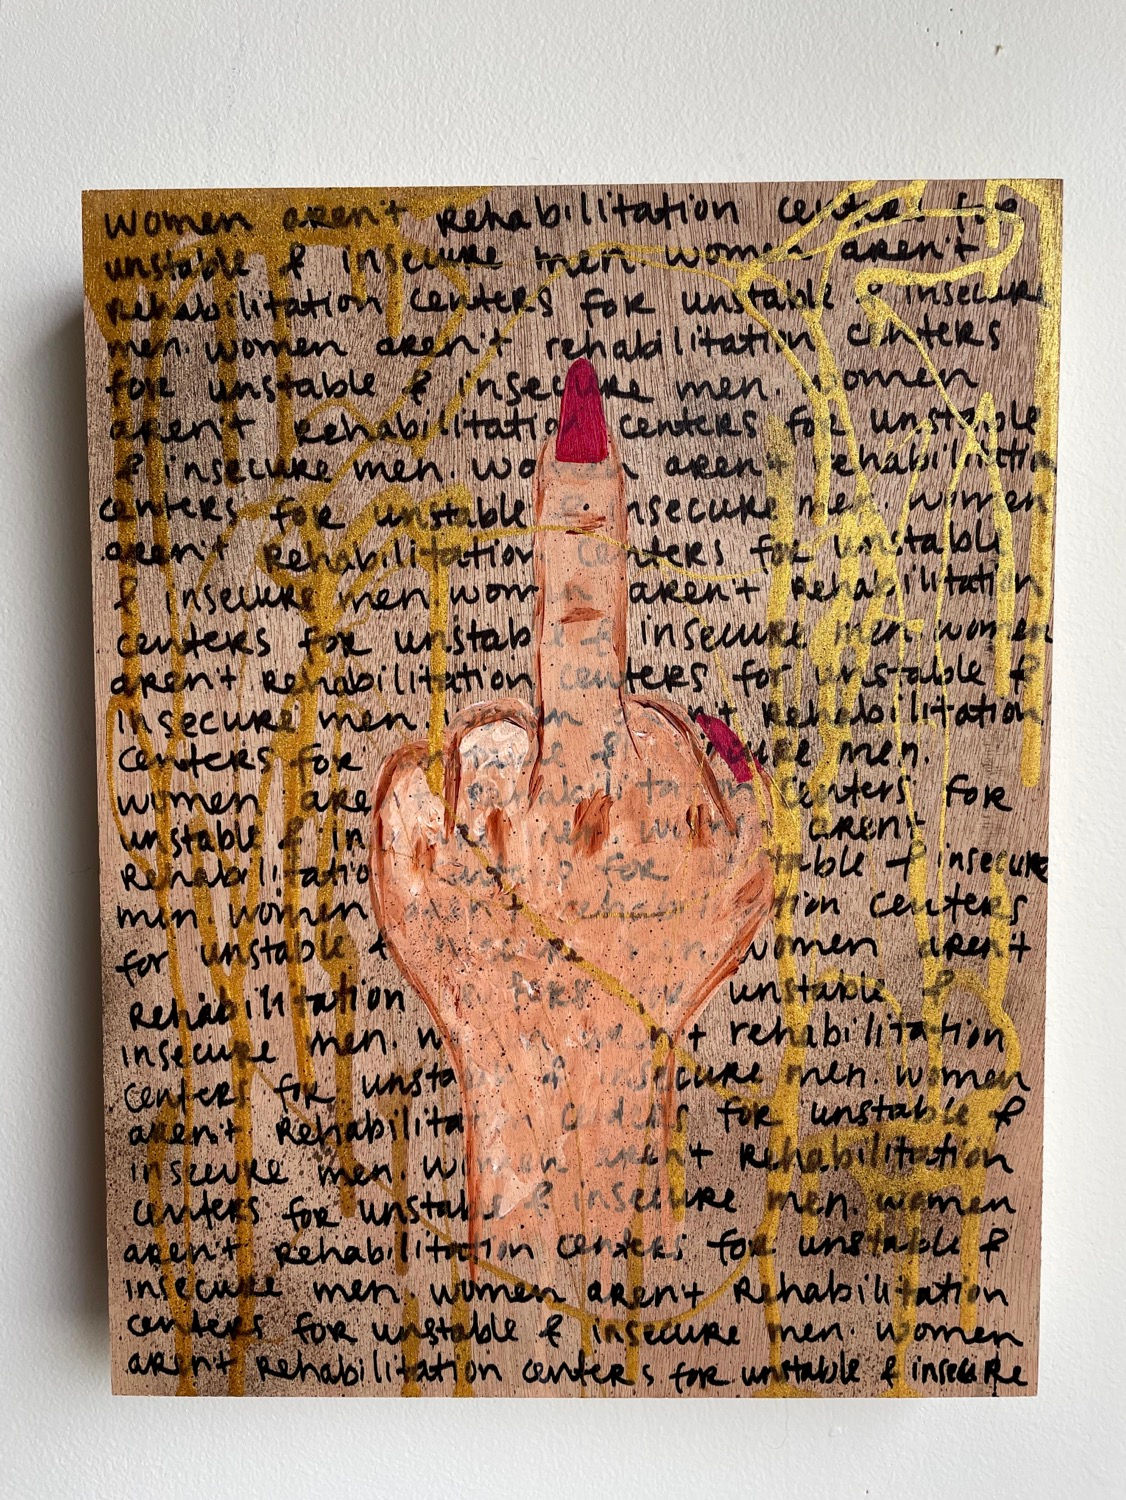 women aren't rehabilitation centers for
unstable & insecure men. women aren't
rehabilitation centers for unstable & insecure
men. women aren't rehabilitation centers
for unstable & insecure men. women
aren't rehabilitation centers for unstable
& insecure men. women aren't rehabilitation
centers for unstable & insecure men. women
aren't rehabilitation centers for unstable
& insecure men. women aren't rehabilitation
centers for unstable & insecure men women
aren't rehabilitation centers for unstable &
insecure men. women aren't rehabilitation
centers for unstable & insecure men.
women aren't rehabilitation centers for
unstable & insecure men. women aren't
rehabilitation centers for unstable & insecure
men. women aren't rehabilitation centers
for unstable & insecure men. women aren't
rehabilitation centers for unstable &
insecure men. women aren't rehabilitation
centers for unstable & insecure men. women
aren't rehabilitation centers for unstable &
insecure men. women aren't rehabilitation
centers for unstable & insecure men. women
aren't rehabilitation centers for unstable &
insecure men. women aren't rehabilitation
centers for unstable & insecure men. women
aren't rehabilitation centers for unstable & insecure